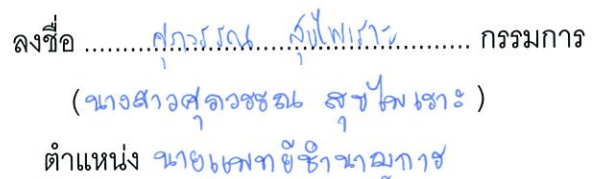 ลงชื่อ ..........ศุภวรรณ....สุขไพเราะ.................. กรรมการ
(นางสาวศุภวรรณ สุขไพเราะ)
ตำแหน่ง นายแพทย์ชำนาญการ